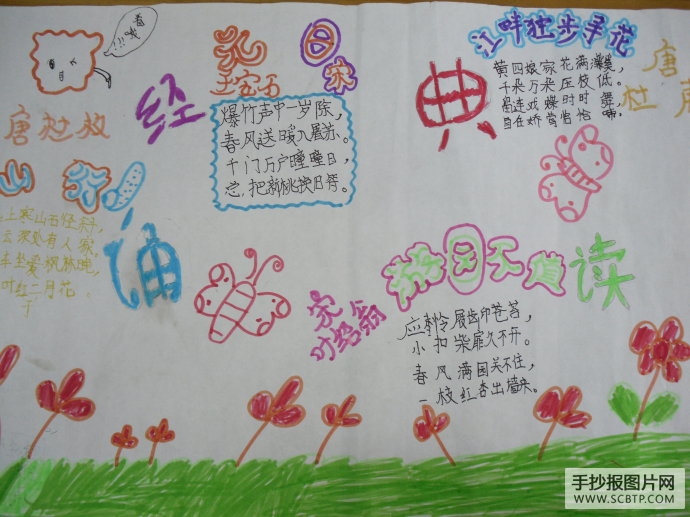 春晓!!!
唐杜牧
山行
上寒山石径斜,
云深处有人家,
车坐爱枫林晚,
叶红二月花。
于
经
诵
元日
王安石
宋
爆竹声中一岁除,
春风送暖入屠苏。
千门万户曈曈日,
总把新桃换旧符。
典
江畔独步寻花
唐
杜甫
黄四娘家花满蹊,
千朵万朵压枝低。
留连戏蝶时时舞,
自在娇莺恰恰啼。
游园不值
读
宋
叶绍翁
应怜屐齿印苍苔,
小扣柴扉久不开。
春风满园关不住,
一枝红杏出墙来。
手抄报图片网
WWW.SCBTP.COM